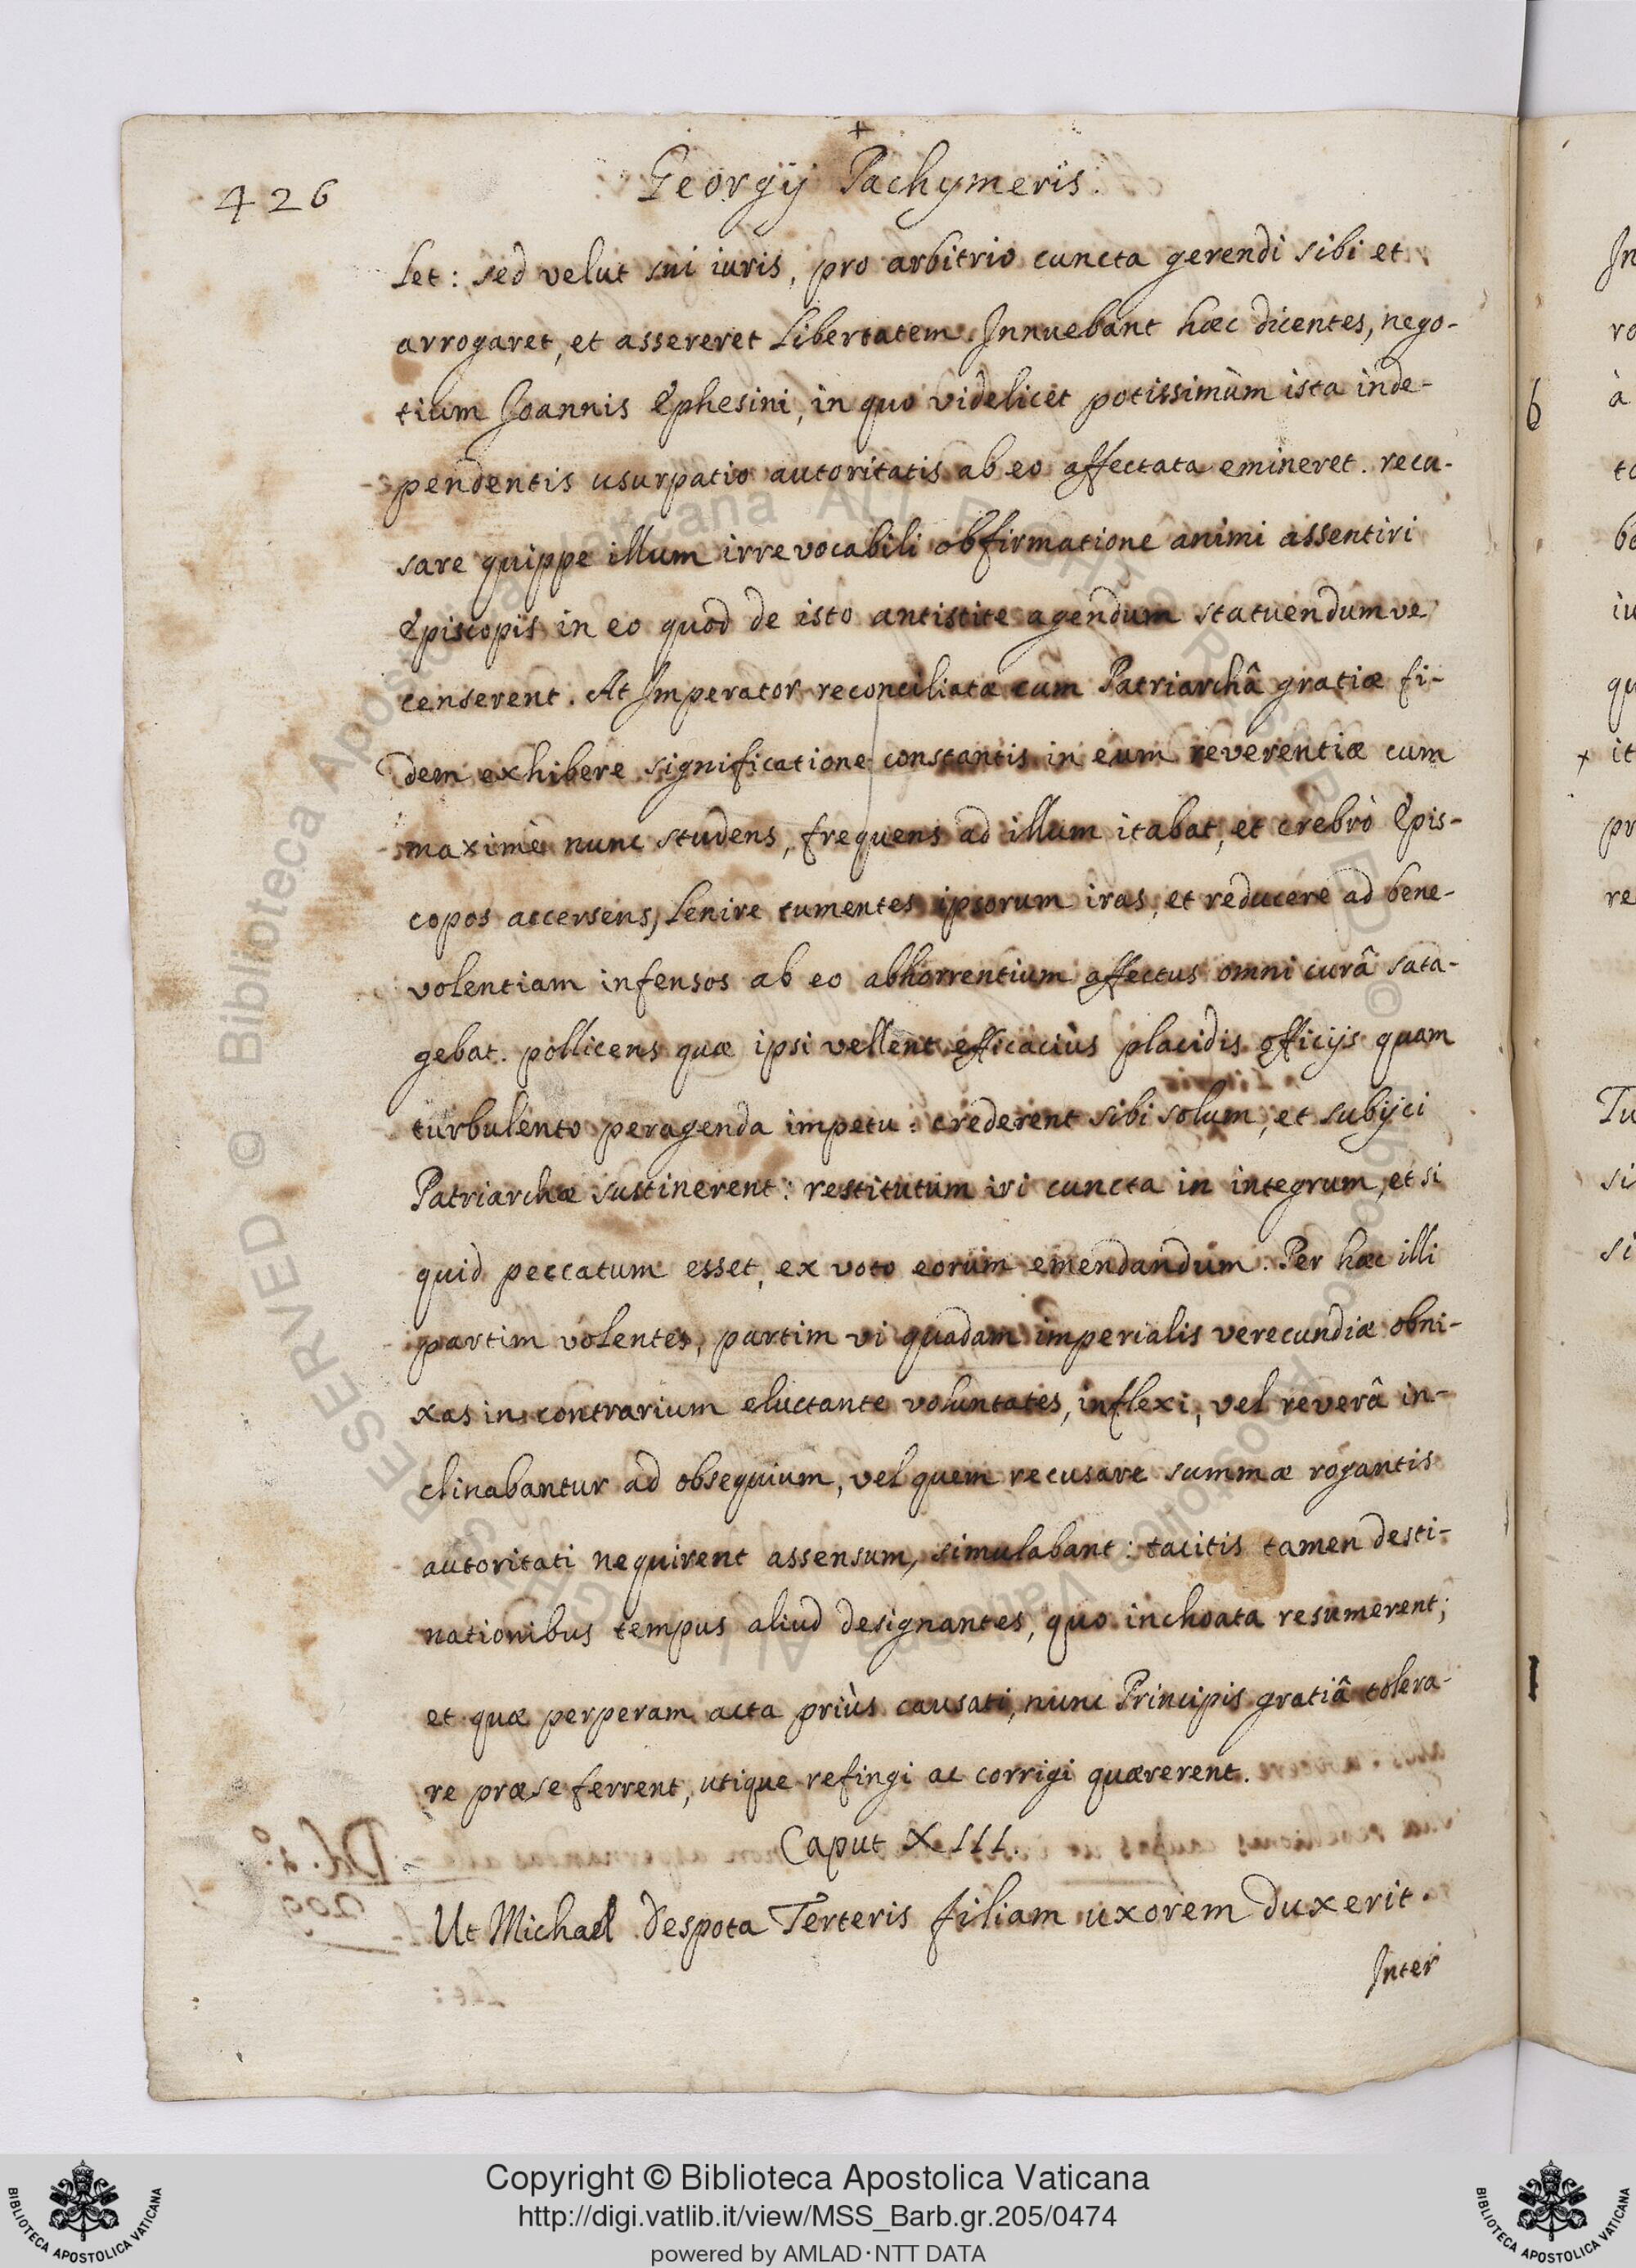 +
426
Georgij Pachymeris.
let: sed velut sui iuris, pro arbitrio cuncta gerendi sibi et
arrogaret, et assereret libertatem. Innuebant hæc dicentes, nego-
tium Joannis Ephesini, in quo videlicet potissimùm ista inde-
pendentis usurpatio autoritatis ab eo affectata emineret. recu-
sare quippe illum irrevocabili obfirmatione animi assentiri
Episcopis in eo quod de isto antistite agendum statuendumve
censerent. At Imperator reconciliatæ cum Patriarchâ gratiæ fi-
dem exhibere significatione constantis in eum reverentiæ cum
maximè nunc studens, frequens ad illum itabat, et crebrò Epis-
copos accersens, lenire tumentes ipsorum iras, et reducere ad bene-
volentiam infensos ab eo abhorrentium affectus omni curâ sata-
gebat. pollicens quæ ipsi vellent efficaciùs placidis officijs quam
turbulento peragenda impetu: crederent sibi solum, et subijci
Patriarchæ sustinerent: restitutum iri cuncta in integrum, et si
quid peccatum esset, ex voto eorum emendandum. Per hæc illi
partim volentes, partim vi quadam imperialis verecundiæ obni-
xas in contrarium eluctante voluntates, inflexi, vel reverâ in-
clinabantur ad obsequium, vel quem recusare summæ rogantis
autoritati nequirent assensum, simulabant: tacitis tamen desti-
nationibus tempus aliud designantes, quo inchoata resumerent;
et quæ perperam acta priùs causati, nunc Principis gratiâ tolera-
re præ se ferrent, utique refingi ac corrigi quærerent.
Caput XLII.
Ut Michael Despota Terteris filiam uxorem duxerit.
Inter
Copyright © Biblioteca Apostolica Vaticana
http://digi.vatlib.it/view/MSS_Barb.gr.205/0474
powered by AMLAD·NTT DATA
BIBLIOTECA APOSTOLICA VATICANA
BIBLIOTECA APOSTOLICA VATICANA